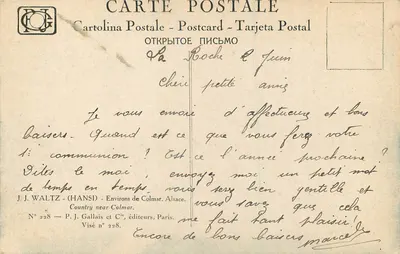 CARTE POSTALE
Cartolina Postale - Postcard - Tarjeta Postal
ОТКРЫТОЕ ПИСЬМО
La Roche 2 Juin
Chère petite amie
Je vous envoie d'affectueux et bons
baisers. Quand est ce que vous ferez votre
1e communion ? Est ce l'année prochaine ?
Dites le moi, envoyez moi un petit mot
de temps en temps, vous serez bien gentille et
J. J. WALTZ - (HANSI) - Environs de Colmar. Alsace.
Country near Colmar.
vous savez que cela
N° 228 - P. J. Gallais et Cie, éditeurs, Paris.
me fait tant plaisir!
Visé n° 228.
Encore de bons baisers
Marcelle